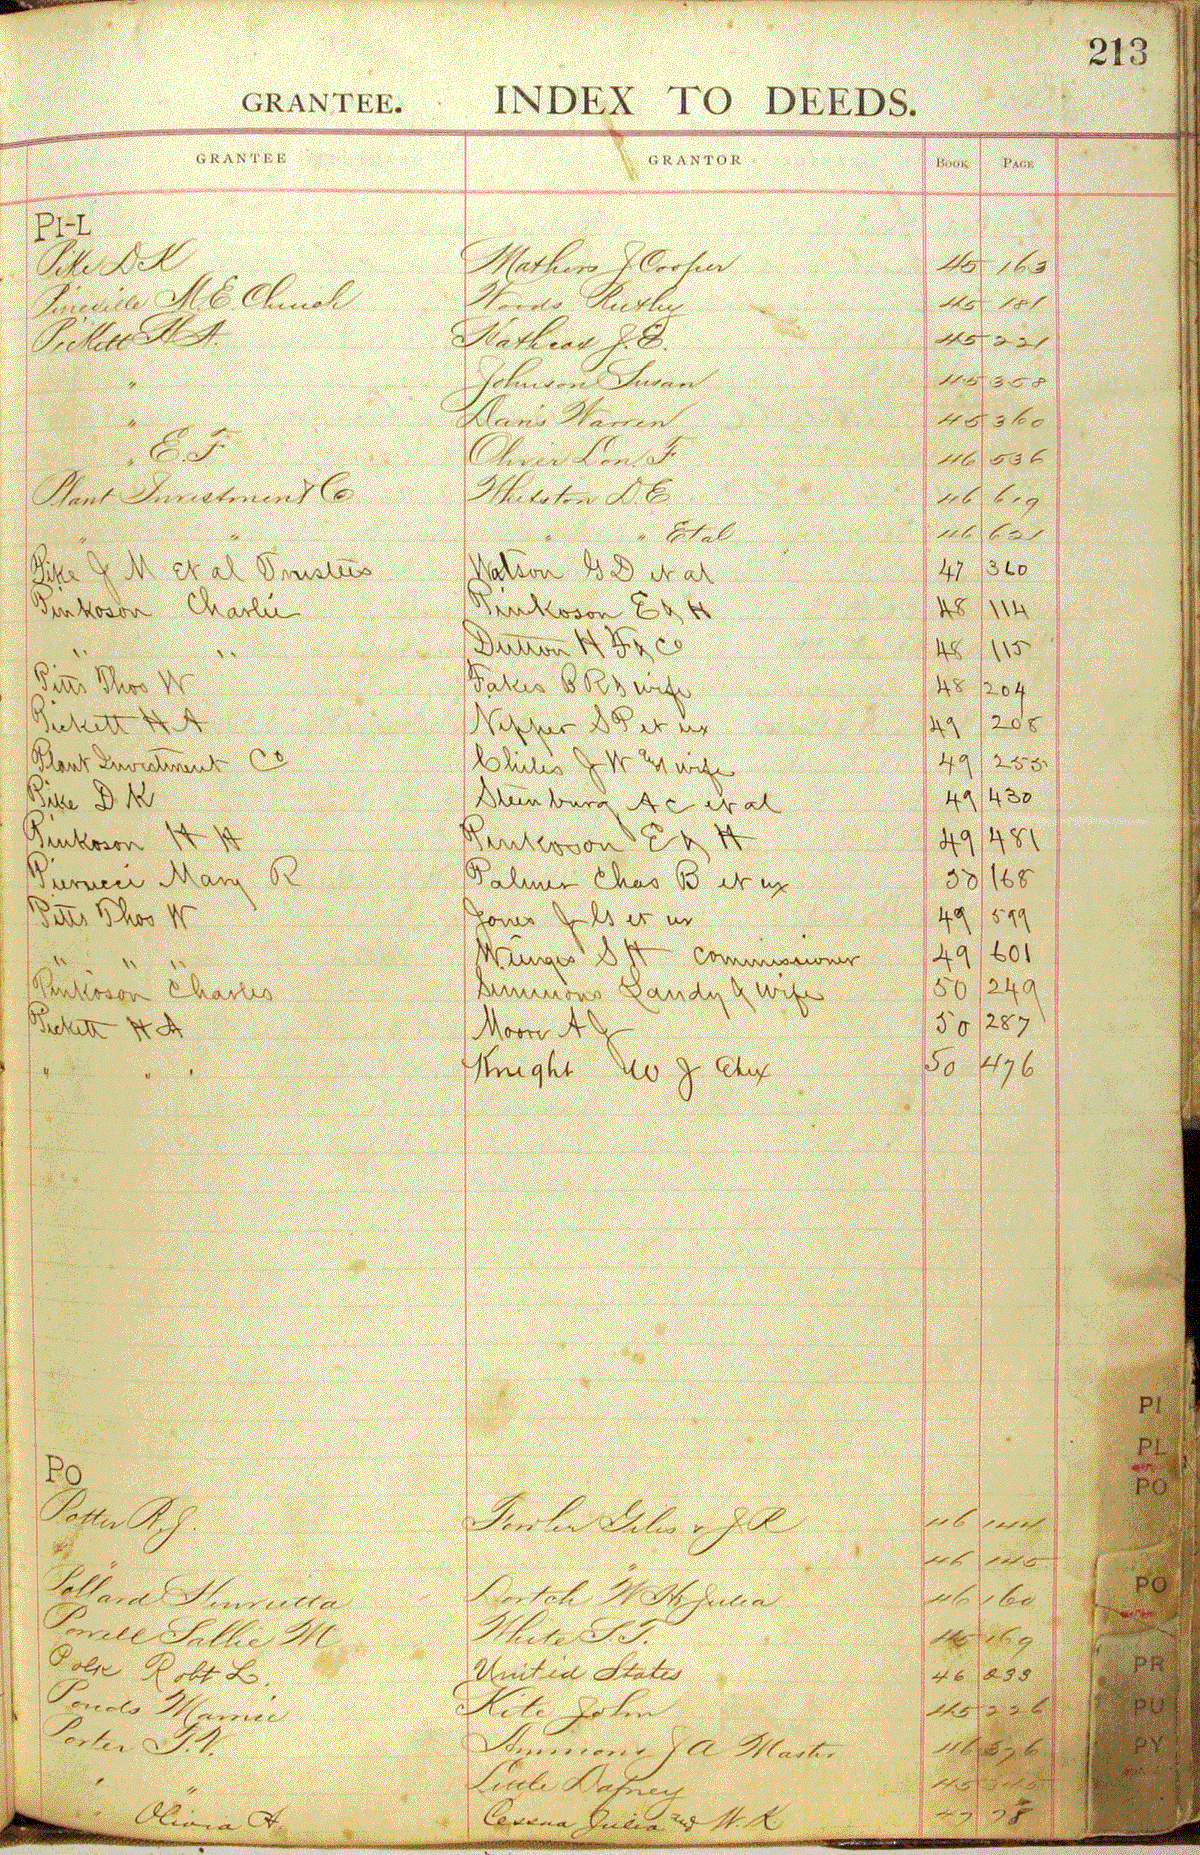 213
GRANTEE. INDEX TO DEEDS.
GRANTEE GRANTOR BOOK PAGE
PI-L
Pike D K Mathers J Cooper 45 163
Pineville M.E. Church Woods Ruxby 45 181
Pickett H A. J.E. 45 221
" Johnson Susan 45 358
" Davis Warren 45 360
" E. F Oliver Lon. F 46 536
Plant Investment Co Whetston D. E 46 619
" " " " Etal 46 621
Pike J M et al Trustees Watson G D et al 47 360
Pinkoson Charlie Pinkoson E & H 48 114
" " Dutton H F & Co 48 115
Pitts Thos W Fakes B R & wife 48 204
Pickett H A Nipper S P et ux 49 208
Plant Investment Co Chiles J W and wife 49 255
Pike D K Steenburg A C et al 49 430
Pinkoson H H Pinkoson E & H 49 481
Pierucci Mary R Palmer Chas B et ux 50 168
Pitts Thos W Jones J G et ux 49 599
" " " Wienges S H commissioner 49 601
Pinkoson Charles Simmons Landy & wife 50 249
Pickett H A Moore A J 50 287
" " " Knight W J 50 476
PO
Potter R. J. Fowler Giles & J R 46 144
" " 46 145
Pollard Henrietta Dortch W H & Julia 46 160
Powell Sallie M White S. T. 169
Polk Robt L. United States 46 233
Pounds Mamie Kite John 45 226
Porter T. V. Ammons J A Master 46 376
" " Little Dafney 45 345
" Olivia A. Cessna Julia and W. K 47 78
PI
PL
PO
PO
PR
PU
PY